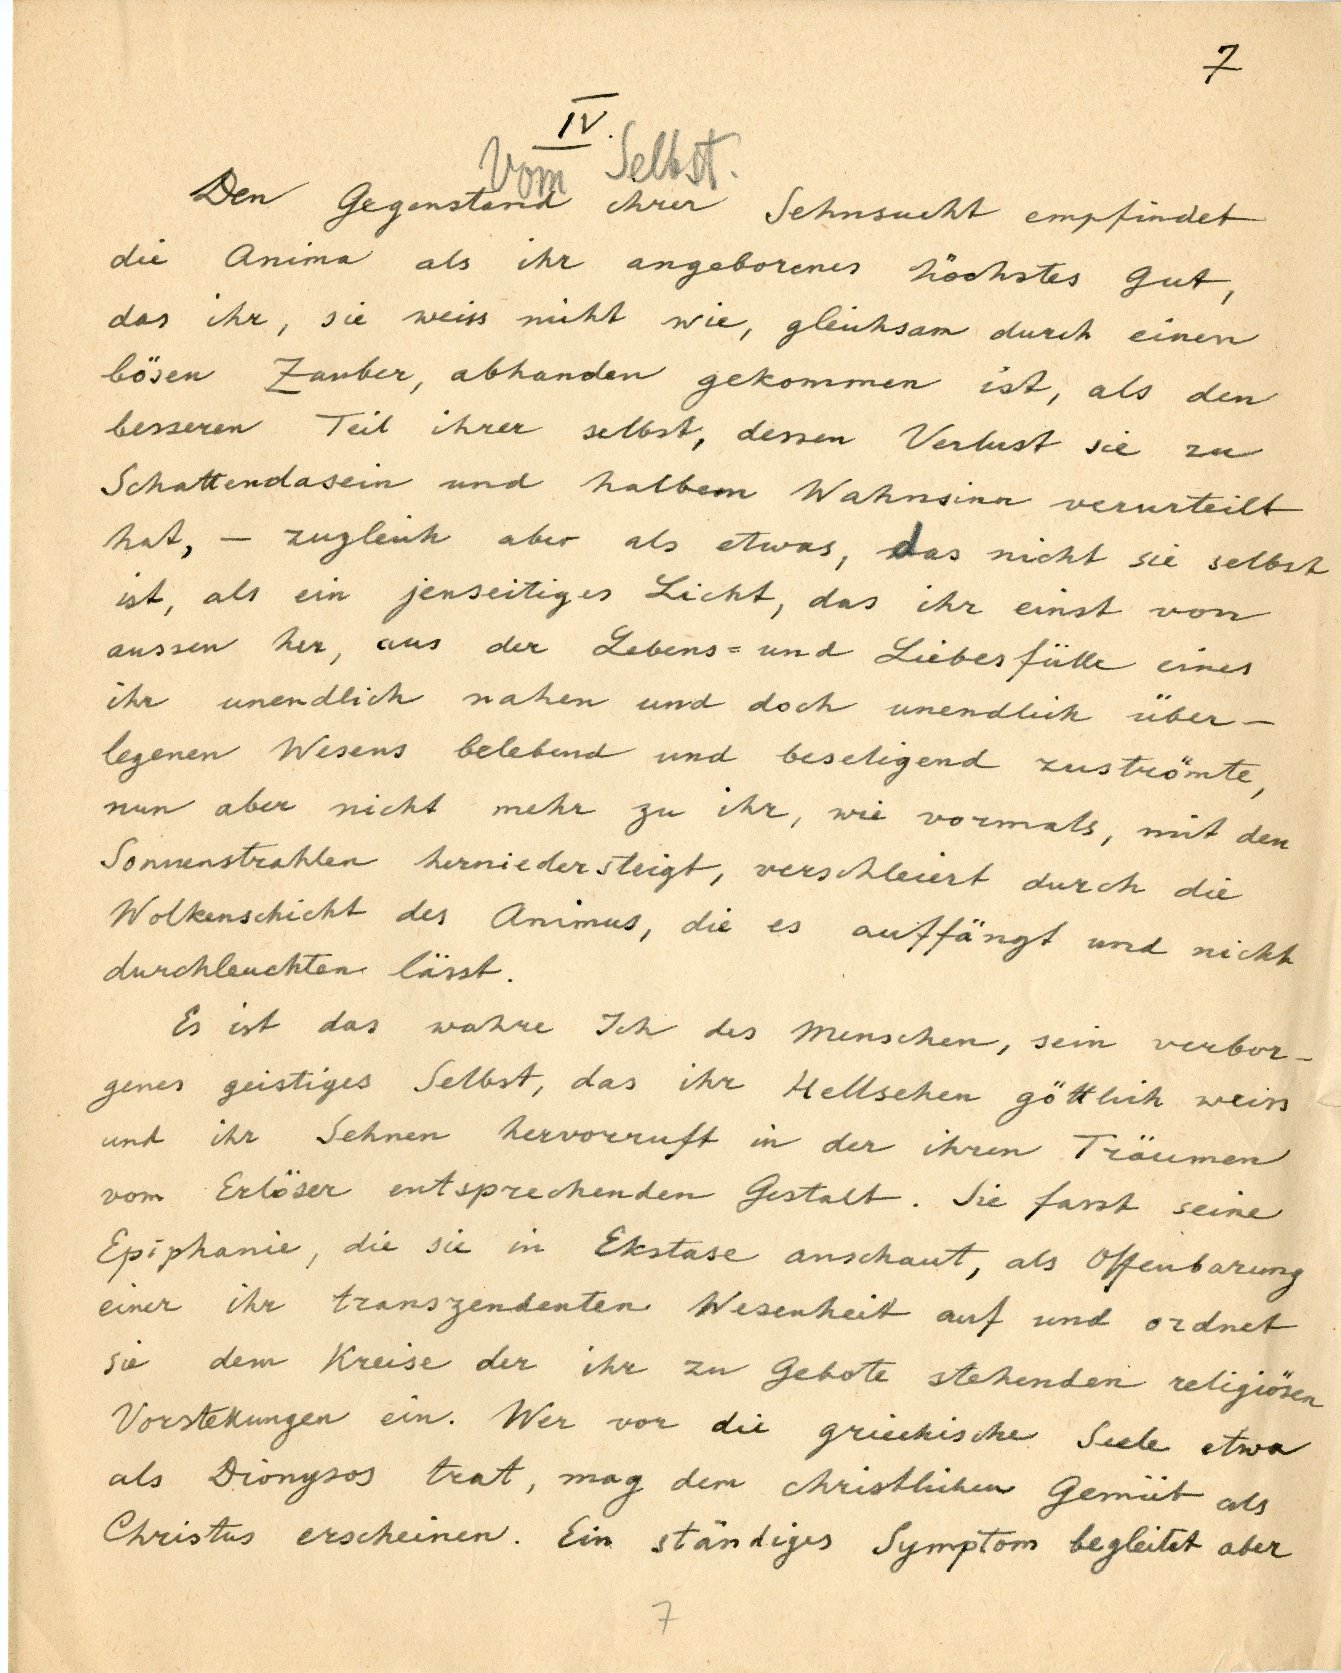 7
IV.
Vom Selbst.
Den Gegenstand ihrer Sehnsucht empfindet
die Anima als ihr angeborenes höchstes Gut,
das ihr, sie weiss nicht wie, gleichsam durch einen
bösen Zauber, abhanden gekommen ist, als den
besseren Teil ihrer selbst, dessen Verlust sie zu
Schattendasein und halbem Wahnsinn verurteilt
hat, — zugleich aber als etwas, das nicht sie selbst
ist, als ein jenseitiges Licht, das ihr einst von
aussen her, aus der Lebens= und Liebesfülle eines
ihr unendlich nahen und doch unendlich über-
legenen Wesens belebend und beseligend zuströmte,
nun aber nicht mehr zu ihr, wie vormals, mit den
Sonnenstrahlen herniedersteigt, verschleiert durch die
Wolkenschicht des Animus, die es auffängt und nicht
durchleuchten lässt.
Es ist das wahre Ich des Menschen, sein verbor-
genes geistiges Selbst, das ihr Hellsehen göttlich weiss
und ihr Sehnen hervorruft in der ihren Träumen
vom Erlöser entsprechenden Gestalt. Sie fasst seine
Epiphanie, die sie in Ekstase anschaut, als Offenbarung
einer ihr transzendenten Wesenheit auf und ordnet
sie dem Kreise der ihr zu Gebote stehenden religiösen
Vorstellungen ein. Wer vor die griechische Seele etwa
als Dionysos trat, mag dem christlichen Gemüt als
Christus erscheinen. Ein ständiges Symptom begleitet aber
7